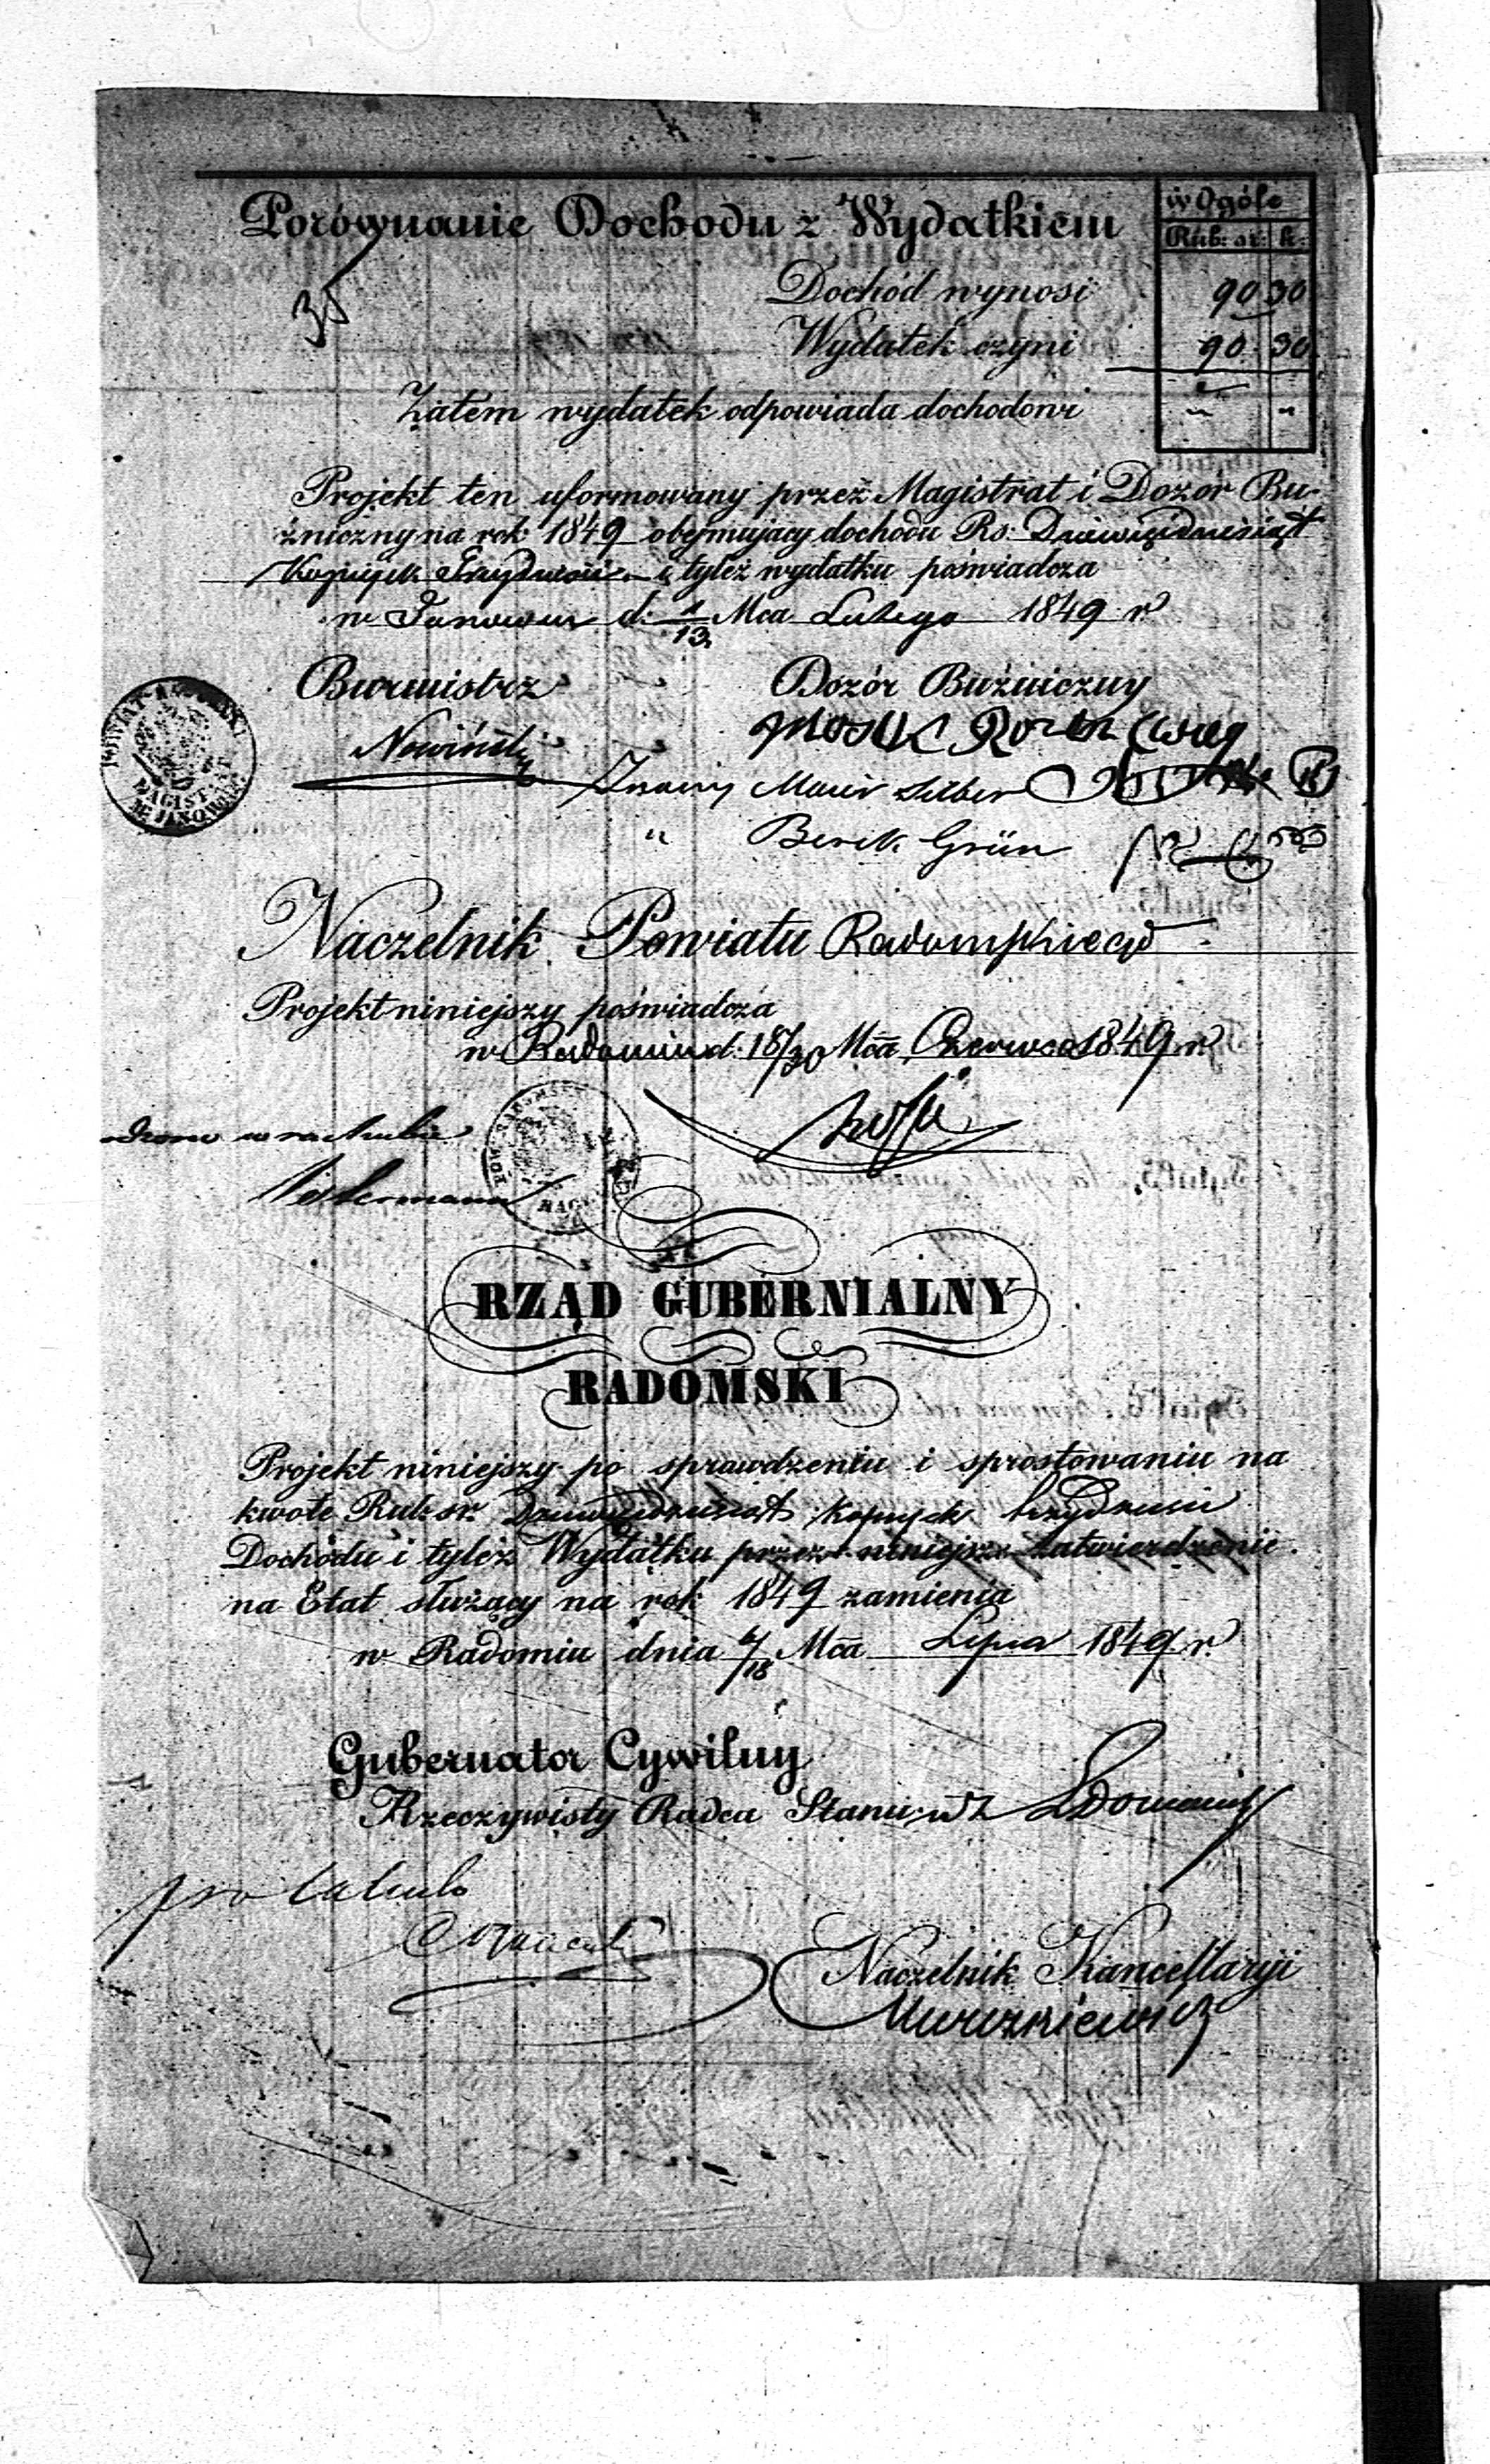 Porównanie Dochodu z Wydatkiem
w Ogóle
Rub: sr: k.
35
Dochód wynosi 90 30
Wydatek czyni 90 30
Zatem wydatek odpowiada dochodowi " "
Projekt ten uformowany przez Magistrat i Dozor Bu-
źniczny na rok 1849 obejmujący dochodu Rs: Dziewięćdziesiąt
Kopiejek Trzydzieści i tyleż wydatku poświadcza
w Janowcu d. 1/13 Mca Lutego 1849 r.
Burmistrz Dozór Buźniczny
Nowiński
Znany Maier Silber
" Berek Grün
POWIAT
MAGISTRAT
M. JANOWCA
Naczelnik Powiatu Radomskiego
Projekt niniejszy poświadcza
w Radomiu d. 18/30 Mca Czerwca 1849 r.
RZĄD GUBERNIALNY
RADOMSKI
Projekt niniejszy po sprawdzeniu i sprostowaniu na
kwotę Rub. sr. Dziewięćdziesiąt kopiejek trzydzieści
Dochodu i tyleż Wydatku przez niniejsze zatwierdzenie
na Etat służący na rok 1849 zamienia
w Radomiu dnia 6/18 Mca Lipca 1849 r.
Gubernator Cywilny
Rzeczywisty Radca Stanu wz
pro Calculo
Naczelnik Kancellaryi